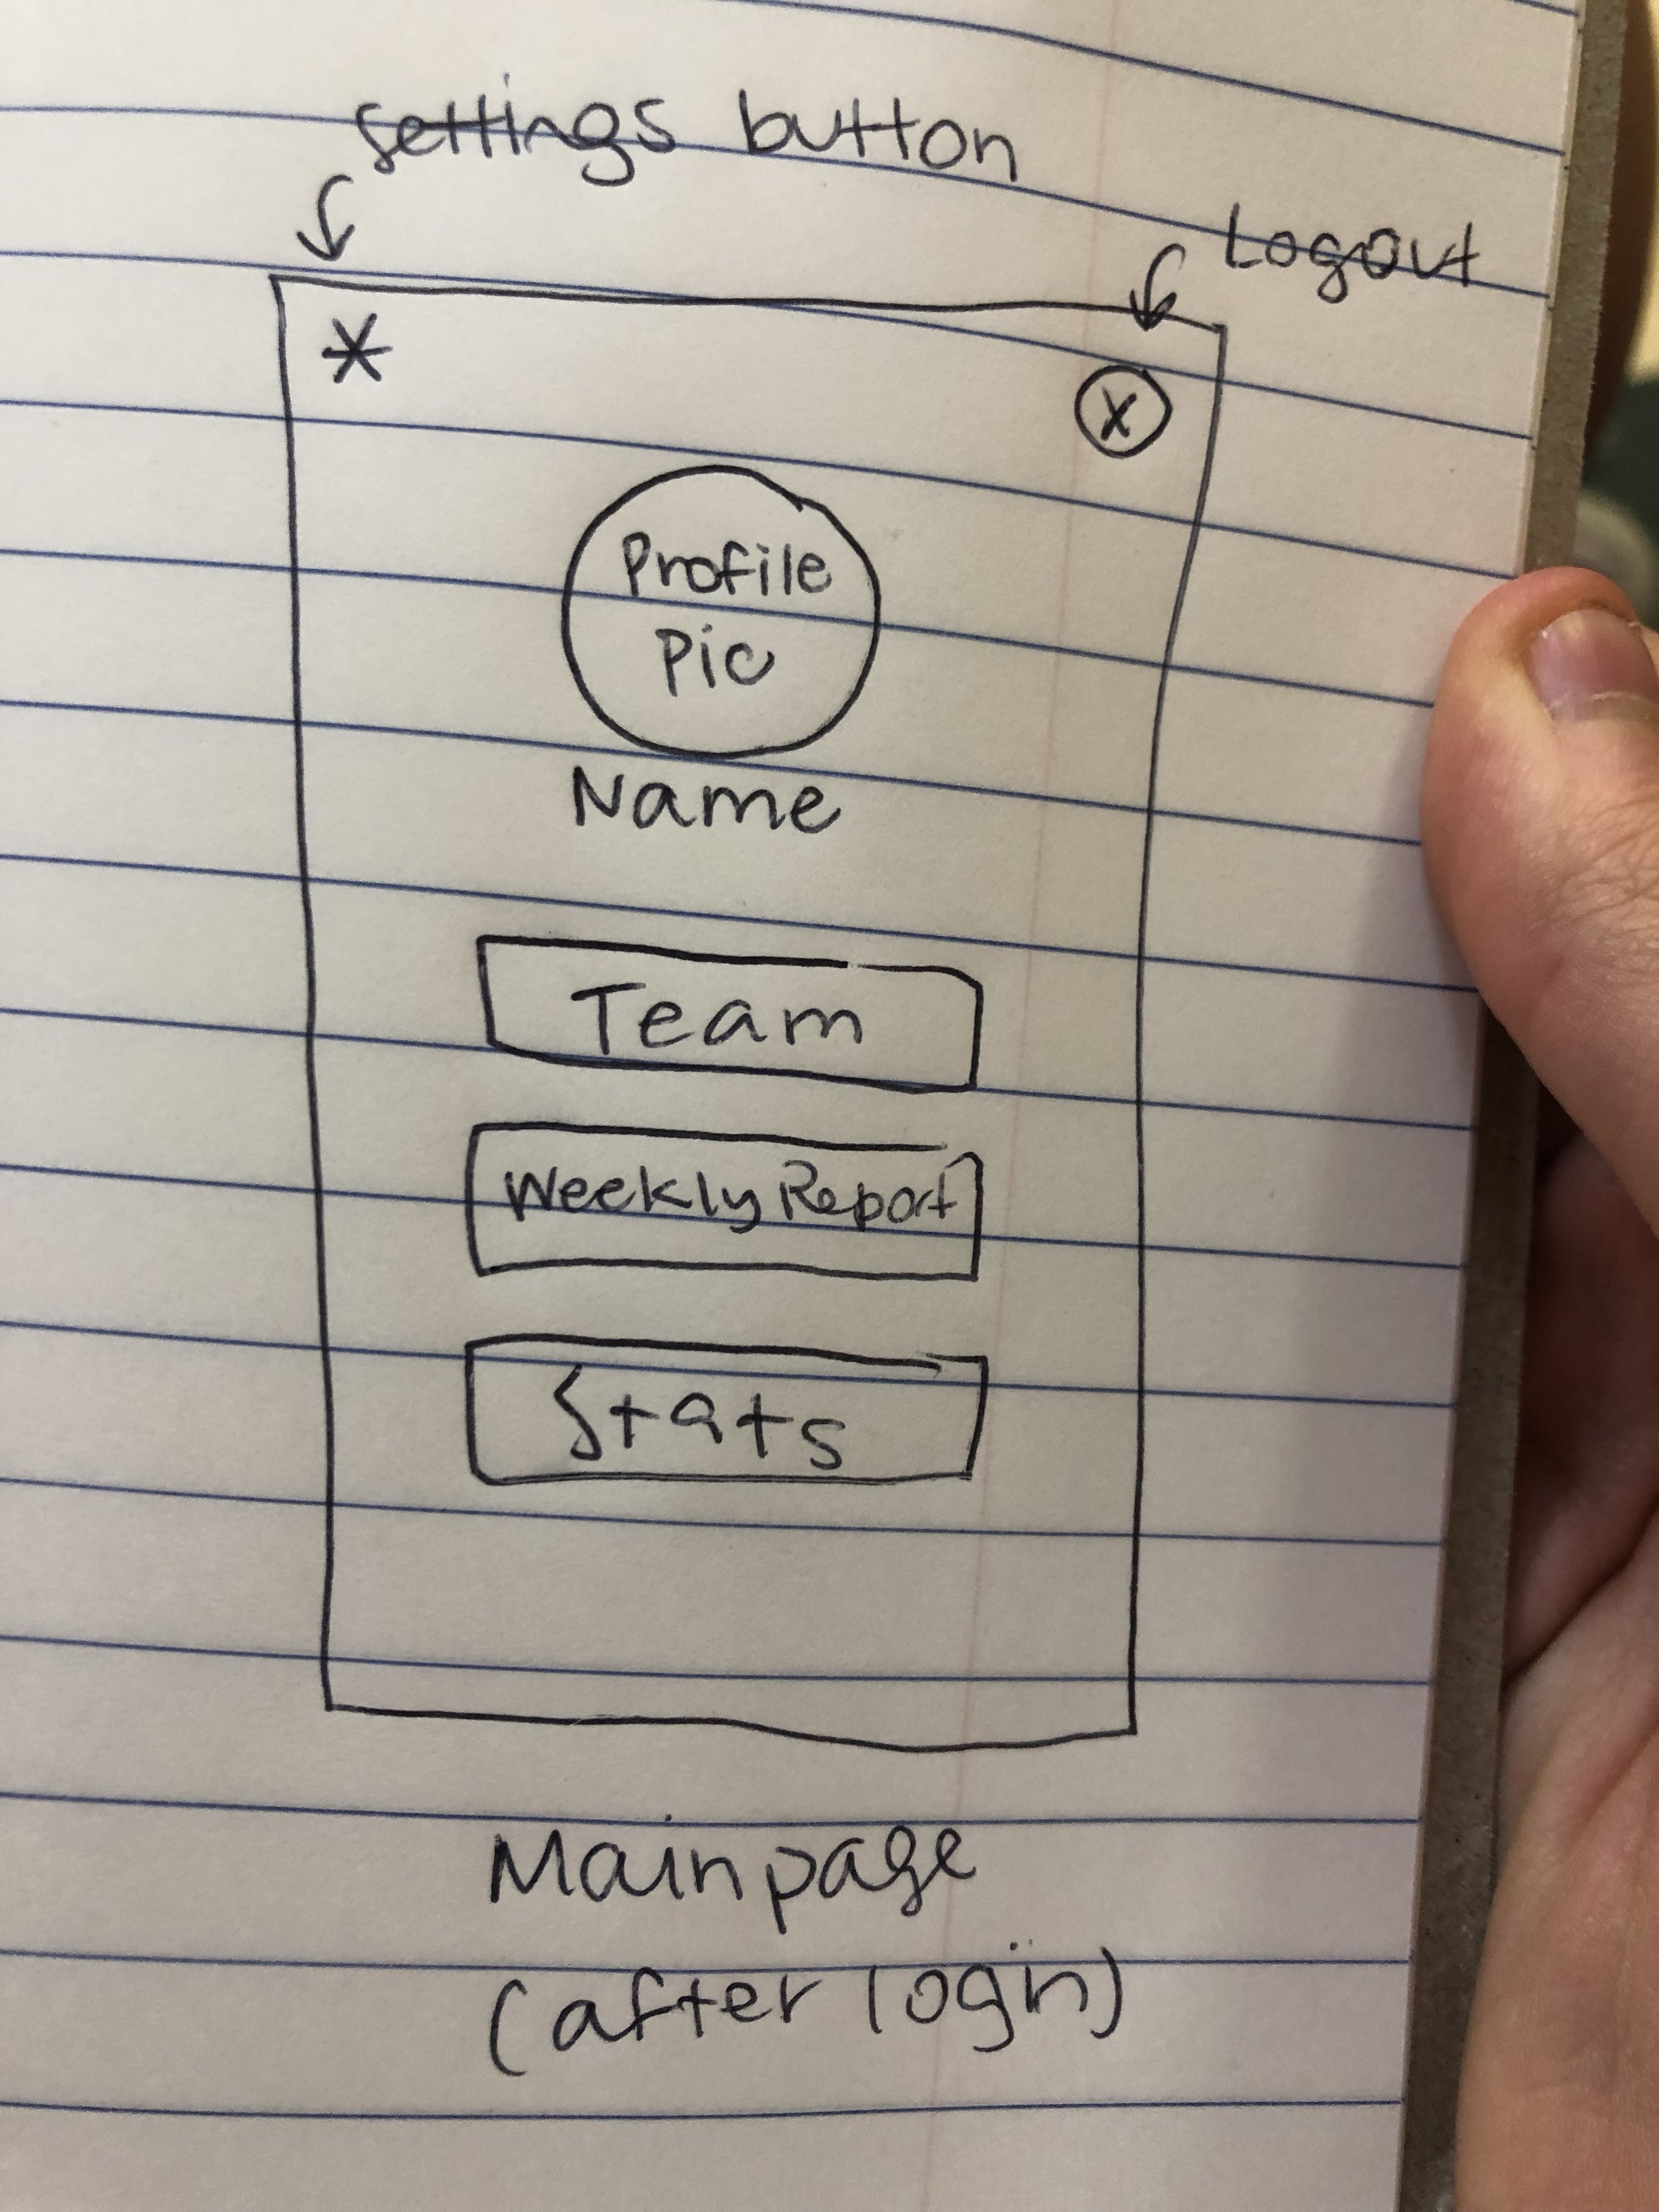 settings button
Logout
*
X
Profile
Pic
Name
Team
Weekly Report
Stats
Main page
(after login)